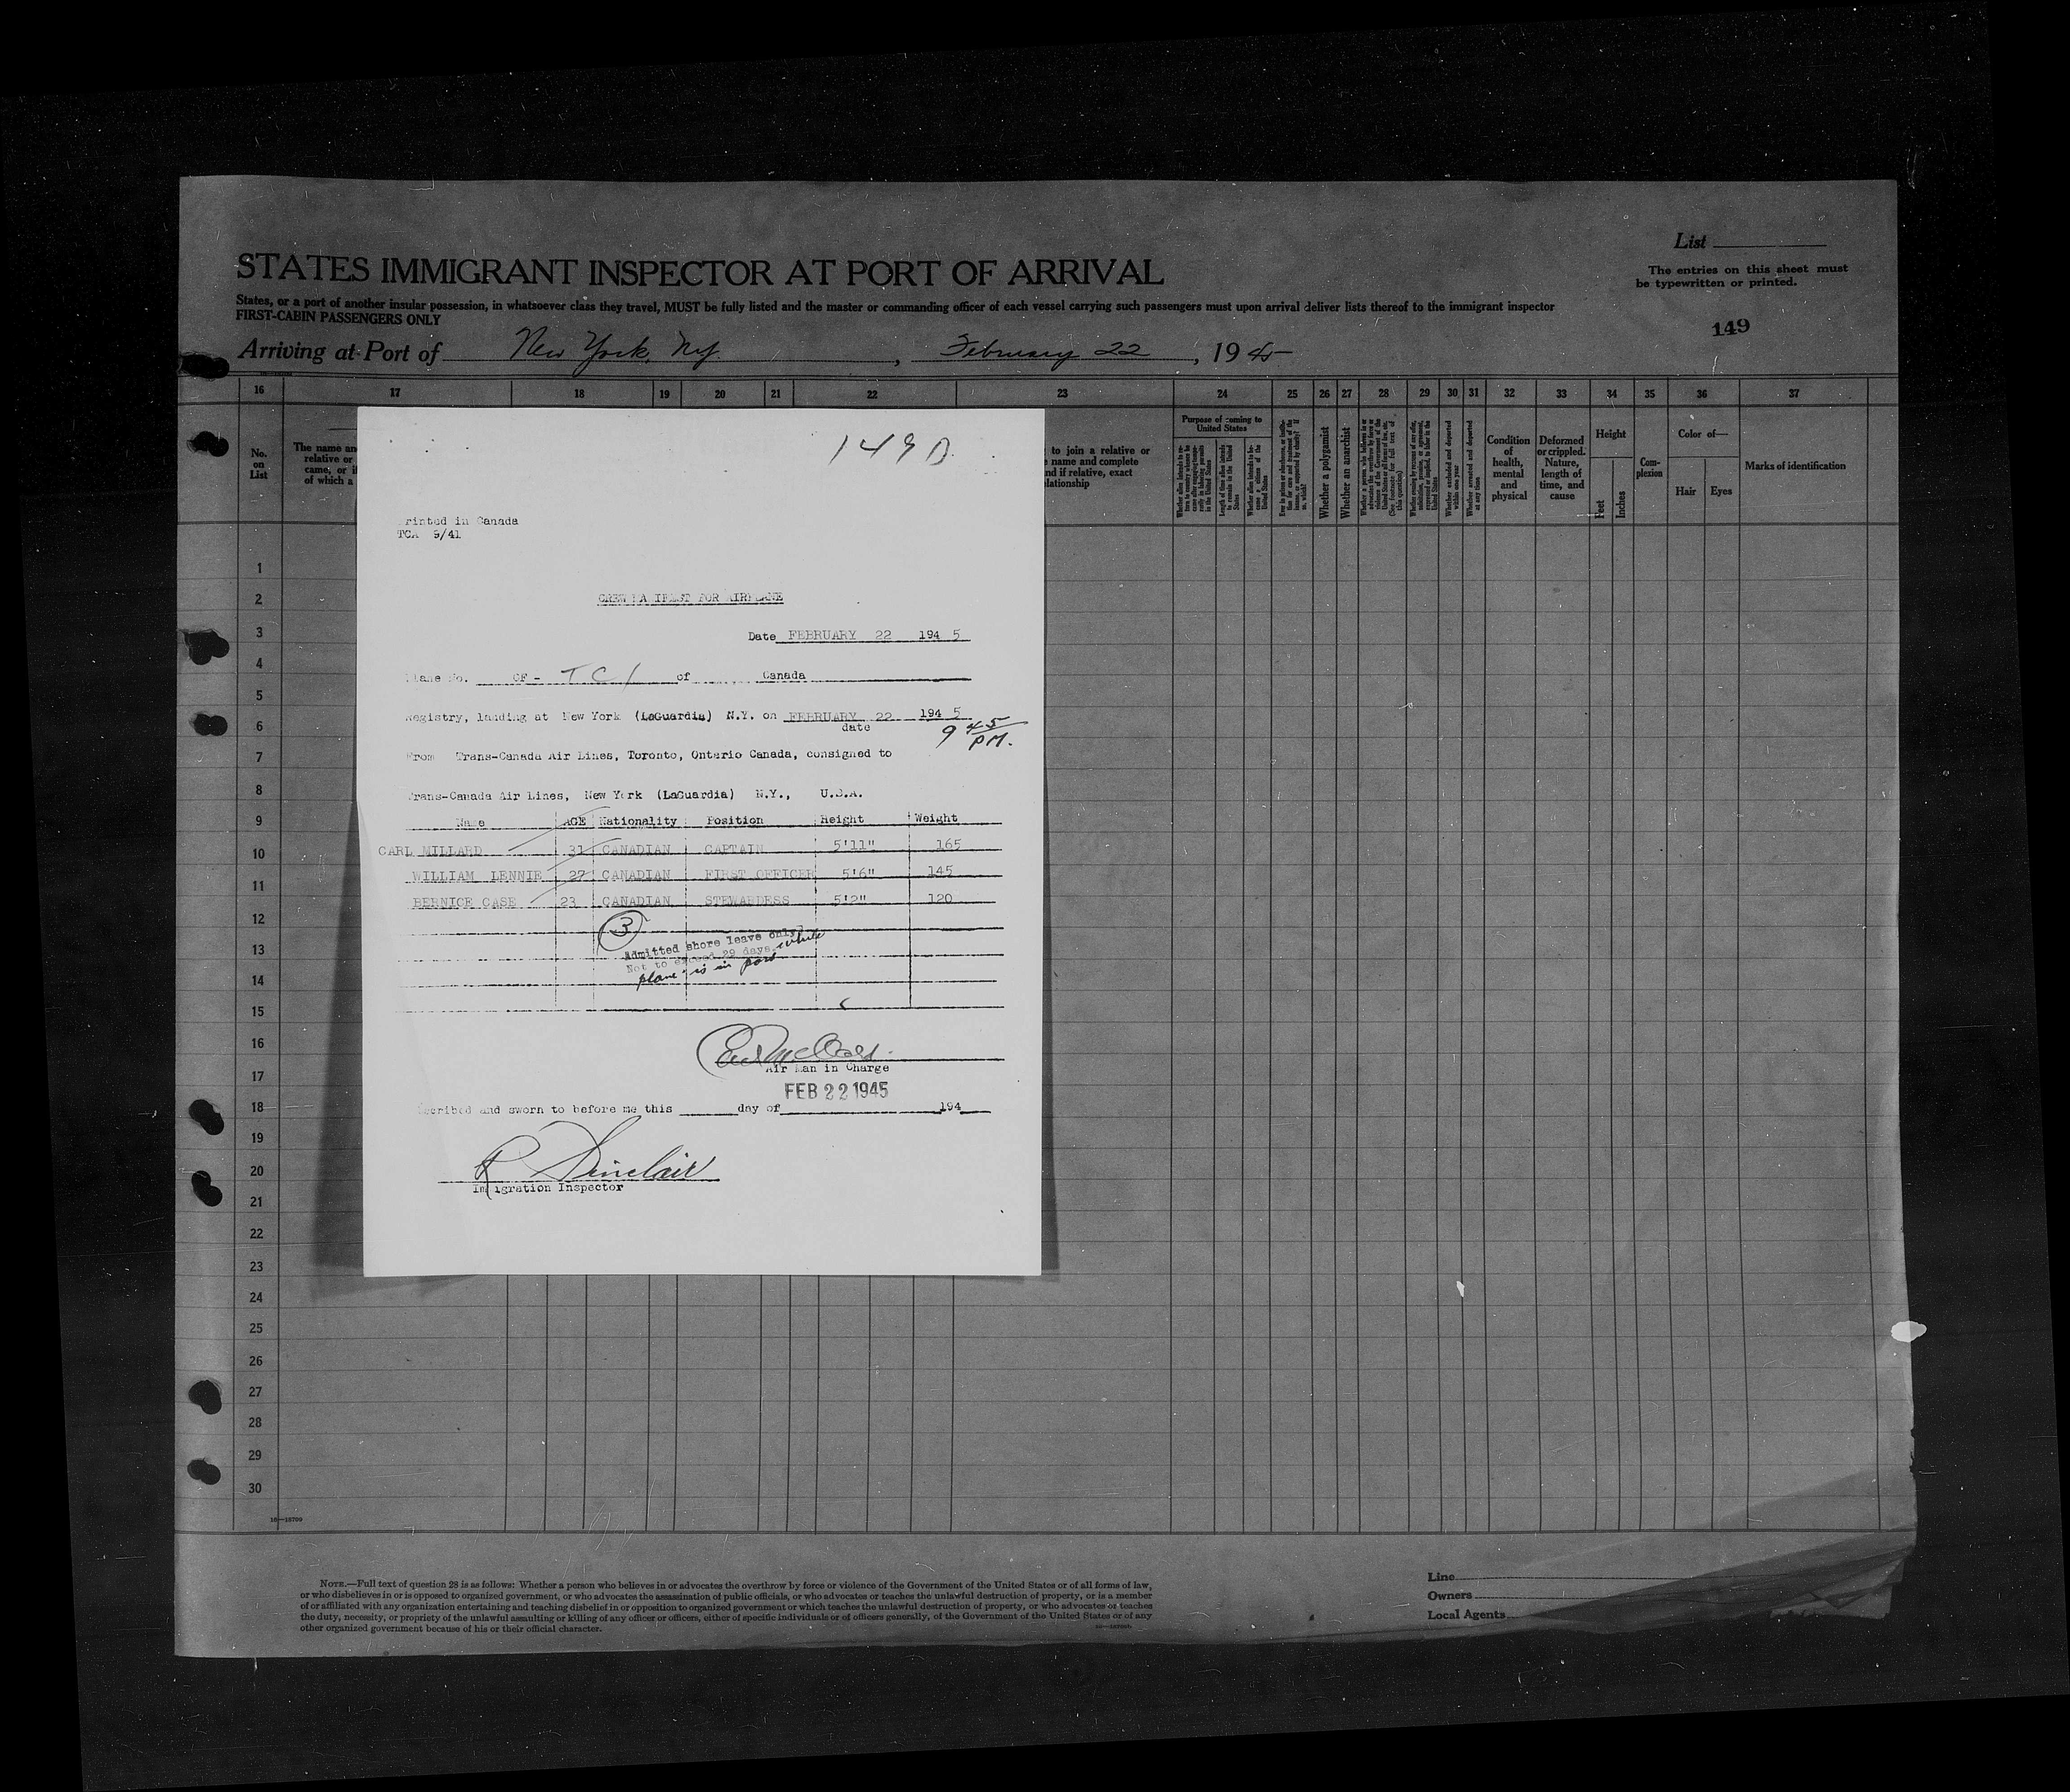 List
STATES IMMIGRANT INSPECTOR AT PORT OF ARRIVAL
The entries on this sheet must
be typewritten or printed.
States, or a port of another insular possession, in whatsoever class they travel, MUST be fully listed and the master or commanding officer of each vessel carrying such passengers must upon arrival deliver lists thereof to the immigrant inspector
FIRST-CABIN PASSENGERS ONLY
149
Arriving at Port of New York, N.Y. , February 22 , 1945
16 17 18 19 20 21 22 23 24 25 26 27 28 29 30 31 32 33 34 35 36 37
No. on List
The name an
relative or
came, or i
of which a
to join a relative or
name and complete
nd if relative, exact
elationship
Purpose of coming to
United States
Whether a polygamist
Whether an anarchist
Condition
of
health,
mental
and
physical
Deformed
or crippled.
Nature,
length of
time, and
cause
Height
Feet
Inches
Com-
plexion
Color of—
Hair
Eyes
Marks of identification
149 B
rinted in Canada
TCA 9/41
CREW MA IFEST FOR AIRPLANE
Date FEBRUARY 22 194 5
Plane No. CF - T C I of Canada
Registry, landing at New York (LaGuardia) N.Y. on FEBRUARY 22 194 5
date
9 45 PM.
From Trans-Canada Air Lines, Toronto, Ontario Canada, consigned to
Trans-Canada Air Lines, New York (LaGuardia) N.Y., U.S.A.
Name AGE Nationality Position Height Weight
CARL MILLARD 31 CANADIAN CAPTAIN 5'11" 165
WILLIAM LENNIE 27 CANADIAN FIRST OFFICER 5'6" 145
BERNICE CASE 23 CANADIAN STEWARDESS 5'2" 120
3
Admitted shore leave only
Not to exceed 29 days. while
plane is in port
Air Man in Charge
FEB 22 1945
scribed and sworn to before me this day of 194
R Sinclair
Immigration Inspector
1
2
3
4
5
6
7
8
9
10
11
12
13
14
15
16
17
18
19
20
21
22
23
24
25
26
27
28
29
30
16—18709
NOTE.—Full text of question 28 is as follows: Whether a person who believes in or advocates the overthrow by force or violence of the Government of the United States or of all forms of law,
or who disbelieves in or is opposed to organized government, or who advocates the assassination of public officials, or who advocates or teaches the unlawful destruction of property, or is a member
of or affiliated with any organization entertaining and teaching disbelief in or opposition to organized government or which teaches the unlawful destruction of property, or who advocates or teaches
the duty, necessity, or propriety of the unlawful assaulting or killing of any officer or officers, either of specific individuals or of officers generally, of the Government of the United States or of any
other organized government because of his or their official character.
Line
Owners
Local Agents